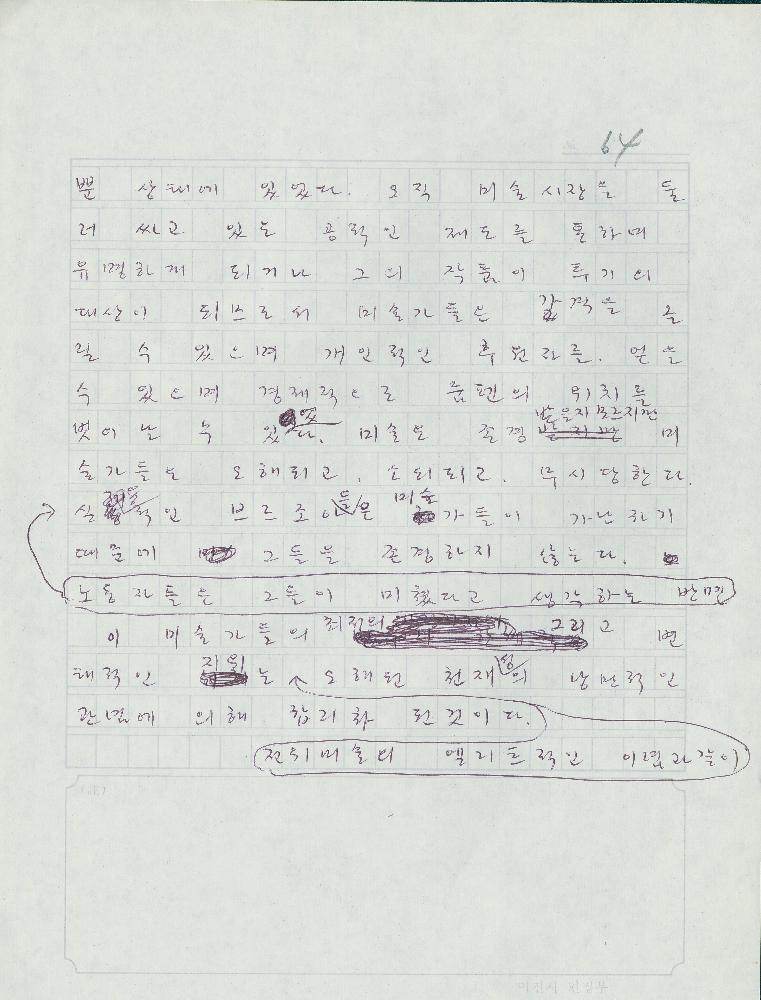 64
뿐 상태에 있었다. 오직 미술시장을 둘
러 싸고 있는 공적인 제도를 통하며
유명하게 되거나 그의 작품이 투기의
대상이 되므로써 미술가들은 감격을 누
릴 수 있으며 개인적인 후원자를. 얻을
수 있으며 경제적으로 룸펜의 위치를
벗어날 수 있었다. 미술은 존경 받을지 모르지만 미
술가들은 오해되고, 소외되고. 무시당한다.
실제적인 브르조아들은 미술가들이 가난하기
때문에 그들을 존경하지 않는다.
노동자들은 그들이 미쳤다고 생각하는 반면
이 미술가들의 최저의 그리고 변
태적인 지위는 오해된 천재성의 낭만적인
관념에 의해 합리화 된것이다.
전위미술의 엘리트적인 이념과같이